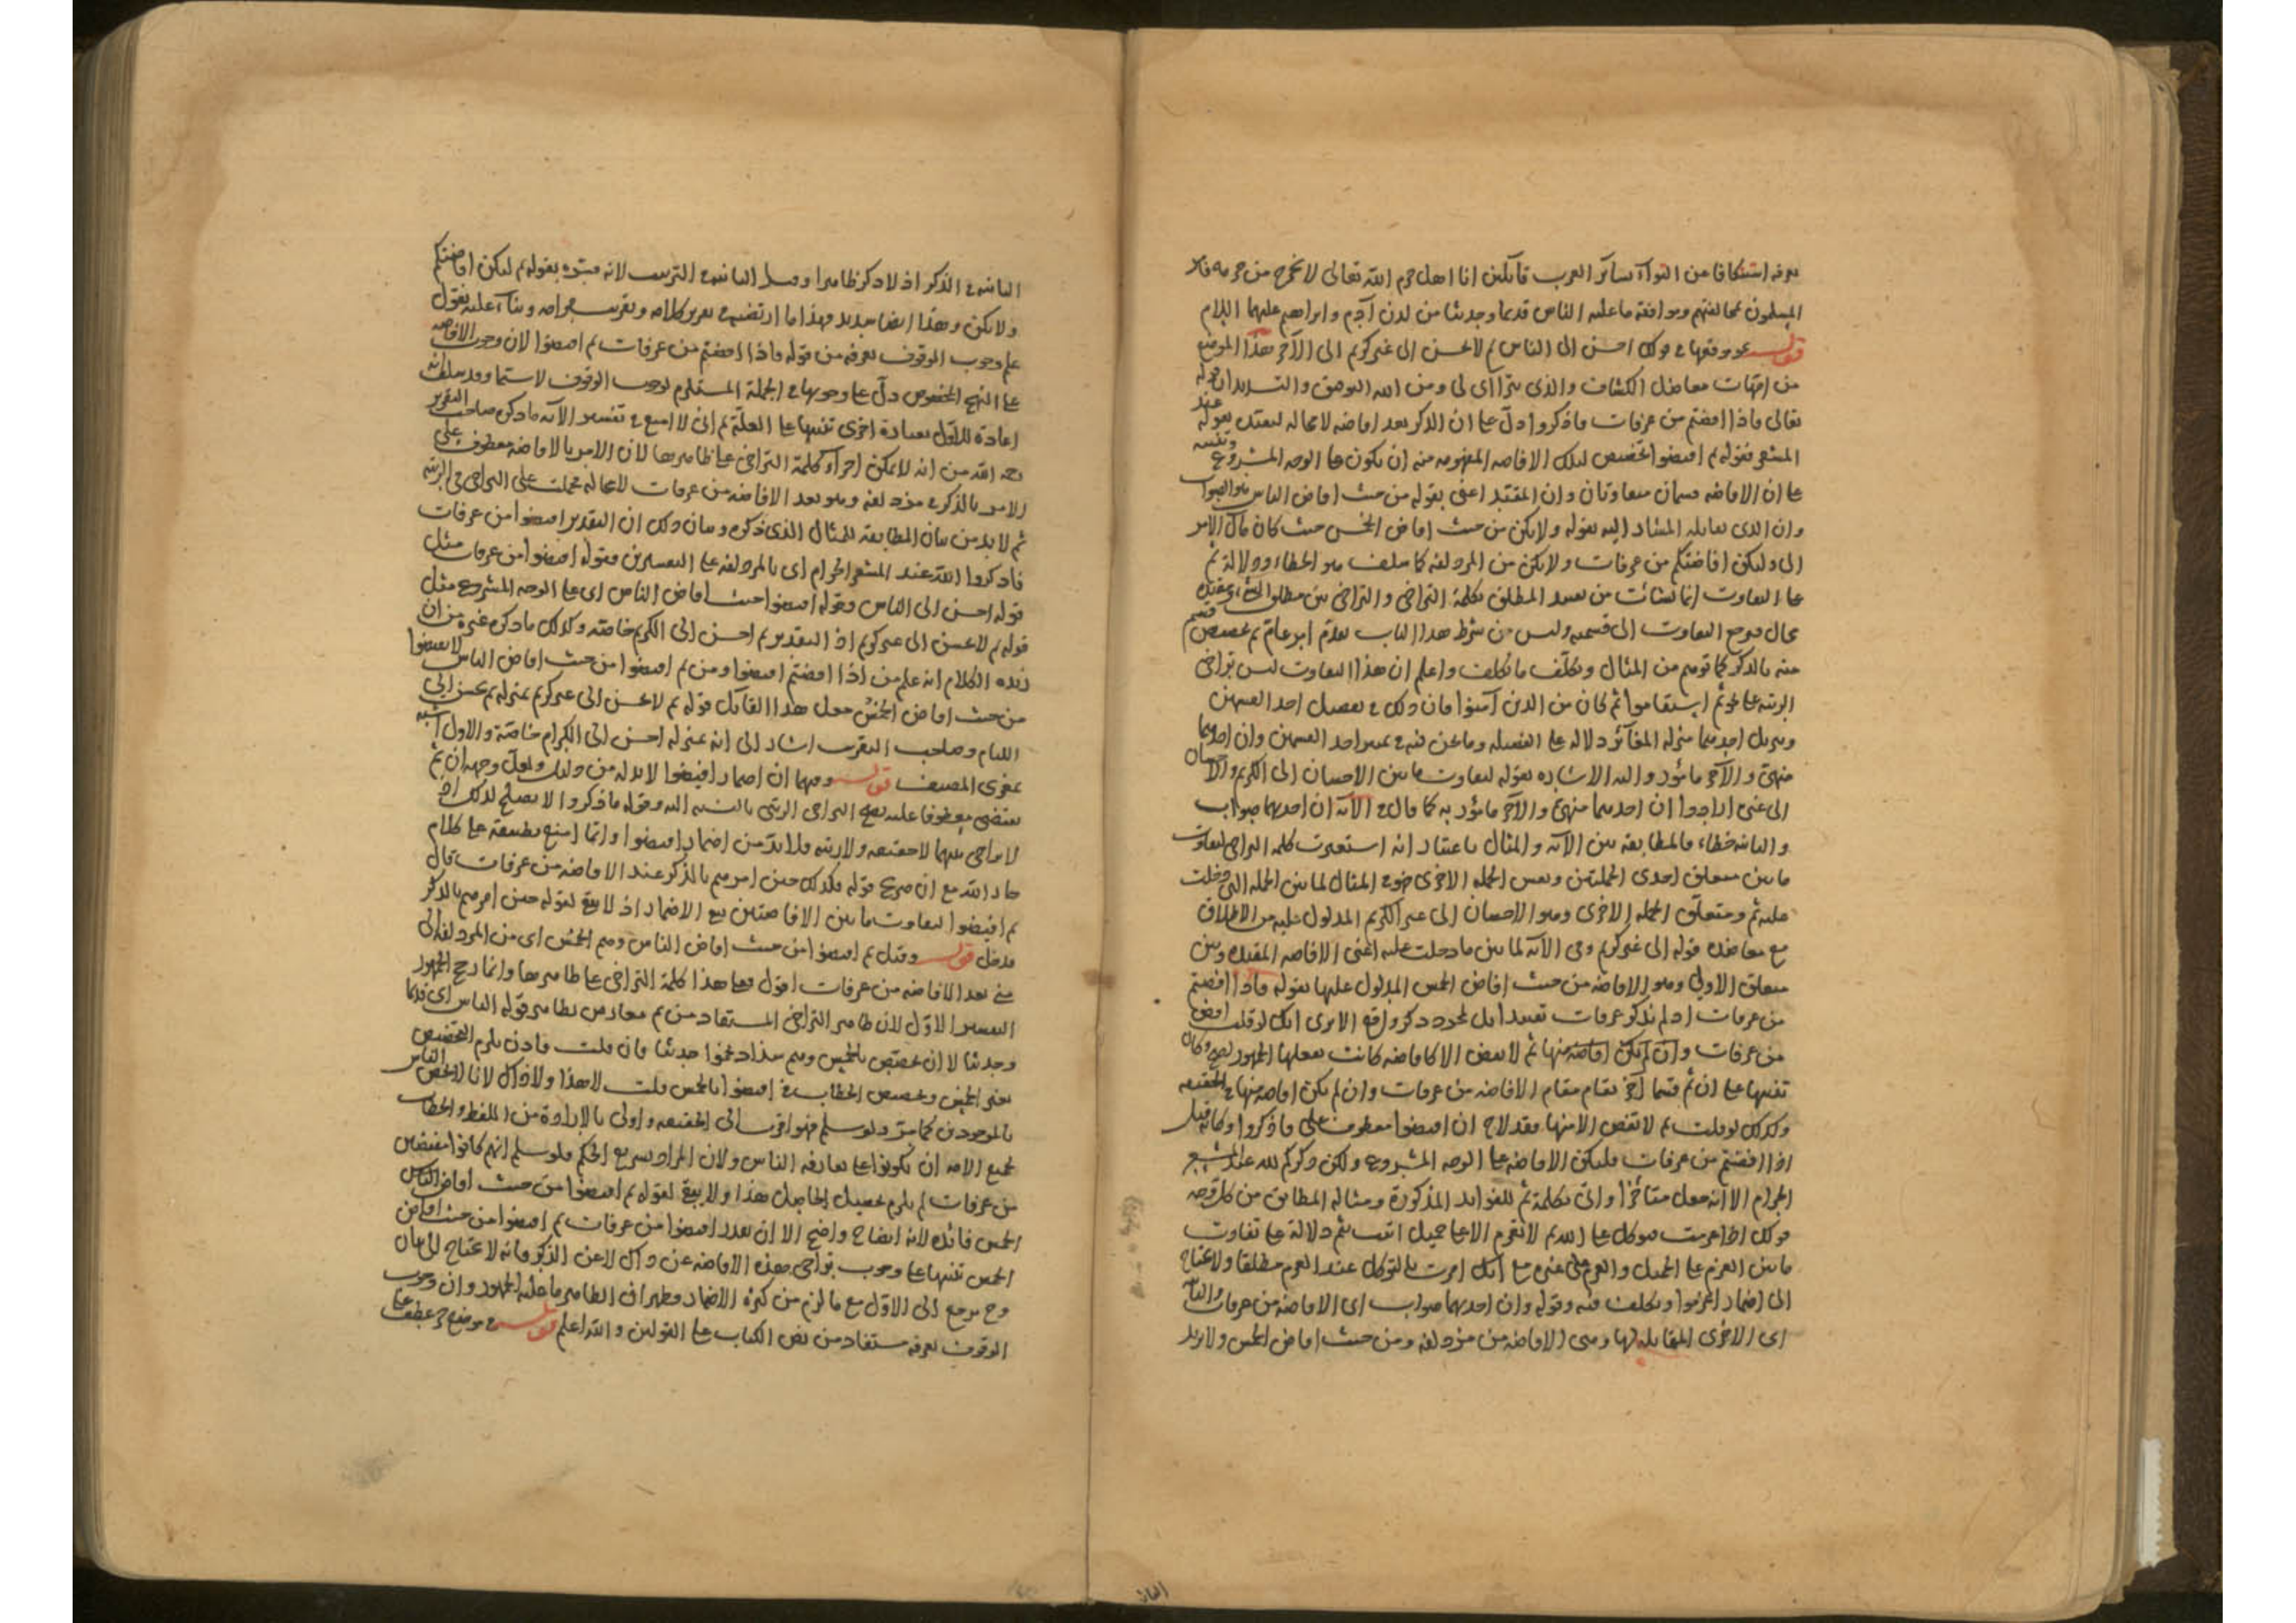 بعرفة استنكافا من السواء سائر العرب قائلين انا اهل حرم الله تعالى لا نخرج من حرمه فامر
المسلمون بمخالفتهم وموافقة ما عليه الناس قديما وحديثا من لدن آدم وابراهيم عليهما السلام
قوله نحو موقعها في قولك احسن الى الناس ثم لا تحسن الى غير كريم الى الآخر هذا الموضع
من امهات معاضل الكشاف والذي يترااى لي ومن الله التوفيق والتسديد ان قوله
تعالى فاذا افضتم من عرفات فاذكروا دلّ على ان الذكر بعد افاضة لا محالة ليعتد بقوله عند
المشعر فقوله ثم افيضوا تخصيص لتلك الافاضة المفهومة منه ان يكون على الوجه المشروع
على ان الافاضة قسمان متفاوتان وان المقيد اعني بقوله من حيث افاض الناس هو الصواب
وان الذي يقابله المشار اليه بقوله ولا يكن من حيث افاض الحمس حيث كان مآل الامر
الى ولتكن افاضتكم من عرفات ولا يكن من المزدلفة كما سلف هو الخطاء ودلالة ثم
على التفاوت انما نشأت من تقييد المطلق بكلمة التراخي والتراخي بين مطلق الشيء ومقيده
محال فرجع التفاوت الى قسميه وليس من شرط هذا الباب تقدم امر عام ثم تخصيص قسم
منه بالذكر كما توهم من المثال وتكلف ما تكلف واعلم ان هذا التفاوت ليس تراخي
الرتبة على نحو ثم استقاموا ثم كان من الذين آمنوا فان ذلك في تفضيل احد القسمين
منهي والآخر مأمور واليه الاشارة بقوله لتفاوت ما بين الاحسان الى الكريم والاحسان
الى غير ارادوا ان احدهما منهي والآخر مأمور به كما قال في الآية ان احدهما صواب
والثانية خطاء فالمطابقة بين الآية والمثال باعتبار انه استعيرت كلمة التراخي لتفاوت
ما بين متعلق احدى الجملتين ونفس الجملة الاخرى ففي المثال لما بين الجملة التي دخلت
عليه ثم ومتعلق الجملة الاخرى وهو الاحسان الى غير الكريم المدلول عليه من الاطلاق
مع معاضدة قوله الى غير كريم وفي الآية لما بين ما دخلت عليه اعني الافاضة المقيدة وبين
متعلق الاولى وهو الافاضة من حيث افاض الحمس المدلول عليها بقوله فاذا افضتم
من عرفات اذ لم يذكر عرفات تقييدا بل لمجرد ذكر واقع الا ترى انك لو قلت افض
من عرفات وان لم تكن افاضة منها ثم لا تفض الا كافاضة كانت يفعلها الجمهور لصح وكان
تنبيها على ان ثم قسما آخر يقام مقام الافاضة من عرفات وان لم يكن افاضة منها في الحقيقة
وكذلك لو قلت ثم لا تفض الا منها فقد لاح ان افيضوا معطوف على فاذكروا وكانه قيل
اذا افضتم من عرفات فليكن الافاضة على الوجه المشروع ولكن ذكركم لله عند المشعر
الحرام الا انه جعل متأخرا واتى بكلمة ثم للفوايد المذكورة ومثاله المطابق من كل وجه
قولك اذا عزمت فتوكل على الله ثم لا تعزم الا على جميل اتيت بثم دلالة على تفاوت
ما بين العزم على الجميل والعزم على غيره مع انك امرت بالتوكل عند العزم مطلقا ولا تحتاج
الى اضمار اعزموا وتكلف فيه وقوله وان احدهما صواب اى الافاضة من عرفات والثانية
اى الاخرى المقابلة لها وهي الافاضة من مزدلفة ومن حيث افاض الحمس ولا يريد
الثانية في الذكر اذ لا ذكر ظاهرا وقيل الثانية في الترتيب لانه فسره بقوله ثم ليكن افاضتكم
ولا يكن وهذا ايضا سديد فهذا ما ارتضيه في تقرير كلامه وتقريب مرامه وبناء عليه نقول
علم وجوب الوقوف بعرفة من قوله فاذا افضتم من عرفات ثم افيضوا لان وجوب الافاضة
على النهج المخصوص دلّ على وجوبها في الجملة المستلزم لوجوب الوقوف لا سيما وقد سلف انه
اعادة للاول بعبارة اخرى تنبيها على العلة ثم اني لا امنع في تفسير الآية ما ذكره صاحب التقريب
رحمه الله من انه لا يمكن اجراء كلمة التراخي على ظاهرها لان الامر بالافاضة معطوف على
الامر بالذكر في مزدلفة وهو بعد الافاضة من عرفات لا محالة فحملت على التراخي في الرتبة
ثم لا بد من بيان المطابقة للمثال الذي ذكره وبيان ذلك ان التقدير افيضوا من عرفات
فاذكروا الله عند المشعر الحرام اى بالمزدلفة على التفسيرين فقوله افيضوا من عرفات مثل
قوله احسن الى الناس وقوله افيضوا حيث افاض الناس اى على الوجه المشروع مثل
قوله ثم لا تحسن الى غير كريم اذ التقدير ثم احسن الى الكريم خاصة وكذلك ما ذكره غيره من ان
زبدة الكلام انه علم من اذا افضتم افيضوا ومن ثم افيضوا من حيث افاض الناس لا تفيضوا
من حيث افاض الحمس جعل هذا القائل قوله ثم لا تحسن الى غير كريم بمنزلة ثم تحسن الى
اللئام وصاحب التقريب اشار الى انه بمنزلة احسن الى الكرام خاصة والاول اشبه
بمغزى المصنف قوله ومهما ان اضمار افيضوا لا بد له من دليل ولعل وجهه ان ثم
يقتضي معطوفا عليه يصح التراخي الرتبي بالنسبة اليه وقوله فاذكروا لا يصلح لذلك اذ
لا تراخي بينهما لا حقيقة ولا رتبة فلا بد من اضمار افيضوا وانما امتنع تطبيقه على كلام
جار الله مع ان صريح قوله فكذلك حين امرهم بالذكر عند الافاضة من عرفات قال
ثم افيضوا لتفاوت ما بين الافاضتين يمنع الاضمار اذ لا يبقى لقوله حين امرهم بالذكر
مدخل قوله وقيل ثم افيضوا من حيث افاض الناس وهم الحمس اى من المزدلفة الى
منى بعد الافاضة من عرفات اقول فعلى هذا كلمة التراخي على ظاهرها وانما رجح الجمهور
التفسير الاول لان ظاهر التراخي المستفاد من ثم معارض بظاهر قوله الناس اى قديما
وحديثا لا ان يختص بالحمس وهم شذاذ نجموا حديثا فان قلت فاذن يلزم التخصيص
بغير الحمس وتخصيص الخطاب في افيضوا بالحمس قلت لا هذا ولا ذاك لانا لا نخص الناس
بالموجودين كما مر ولو سلم فهو اقرب الى الحقيقة واولى بالارادة من اللفظ والخطاب
لجميع الامة ان يكونوا على ما تعارفه الناس ولان المراد تشريع الحكم فلو سلم انهم كانوا مفيضين
من عرفات لم يلزم تحصيل الحاصل هذا ولا يبقى لقوله ثم افيضوا من حيث افاض الناس
الحمس فائدة لانه ايضاح واضح الا ان يقدر افيضوا من عرفات ثم افيضوا من حيث افاض
الحمس تنبيها على وجوب تراخي هذه الافاضة عن ذاك لا عن الذكر فانه لا يحتاج الى بيان
وح يرجع الى الاول مع ما لزم من كثرة الاضمار فظهر ان الظاهر ما عليه الجمهور وان وجوب
الوقوف بعرفة مستفاد من نص الكتاب على القولين والله اعلم قوله في موضع جر عطف على